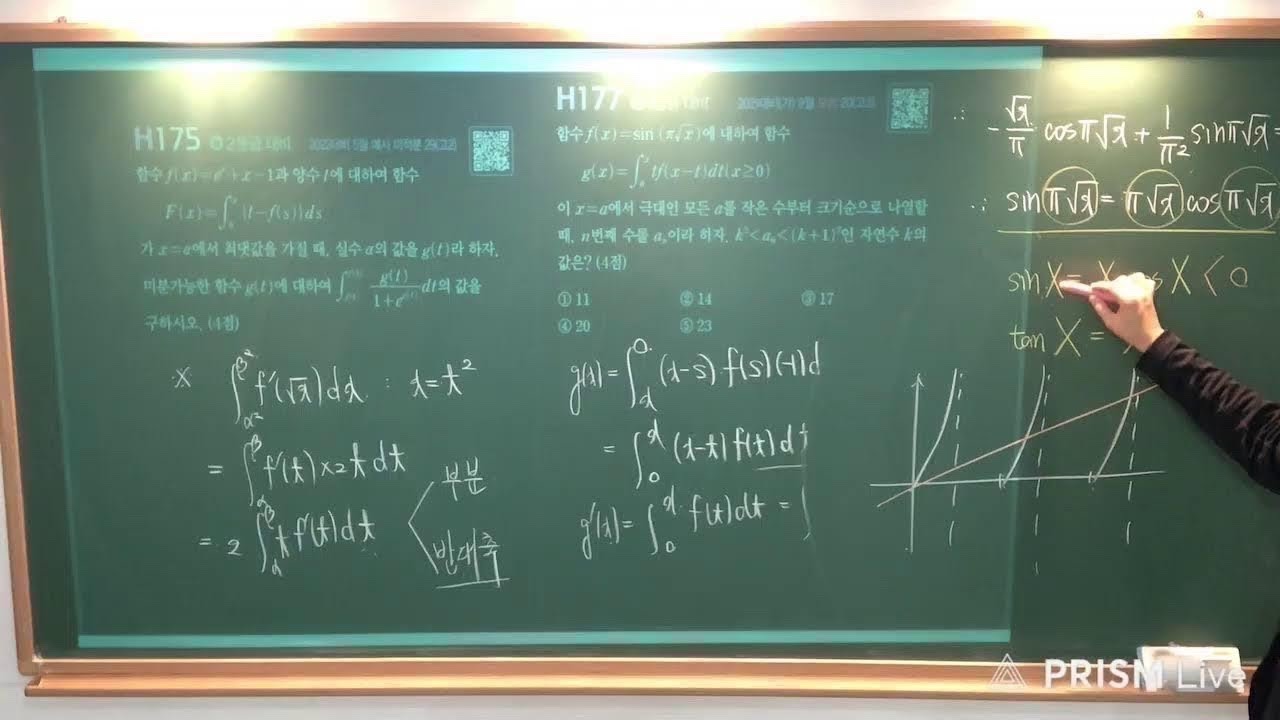 H175
함수 f(x)=eˣ+x−1과 양수 t에 대하여 함수
F(x)=∫₀ˣ {t−f(s)}ds
가 x=α에서 최댓값을 가질 때, 실수 α의 값을 g(t)라 하자.
미분가능한 함수 g(t)에 대하여 ∫ g(t)/(1+e^{g(t)}) dt의 값을
구하시오. (4점)
※ ∫_{α²}^{β²} f′(√x)dx : x=t²
= ∫_α^β f′(t)×2t dt
= 2∫_α^β t f′(t)dt
부분
반대쪽
H177
함수 f(x)=sin (π√x)에 대하여 함수
g(x)=∫₀ˣ tf(x−t)dt(x≥0)
이 x=a에서 극대인 모든 a를 작은 수부터 크기순으로 나열할
때, n번째 수를 aₙ이라 하자. k²<a₆<(k+1)²인 자연수 k의
값은? (4점)
① 11 ② 14 ③ 17
④ 20 ⑤ 23
g(x)=∫_x^0 (x−s) f(s)(−1)d
= ∫_0^x (x−t) f(t)dt
g′(x)=∫_0^x f(t)dt =
∴ −√x/π cosπ√x + 1/π² sinπ√x =
∴ sin π√x = π√x cos π√x
sin X = X cos X < 0
tan X =
PRISM Live